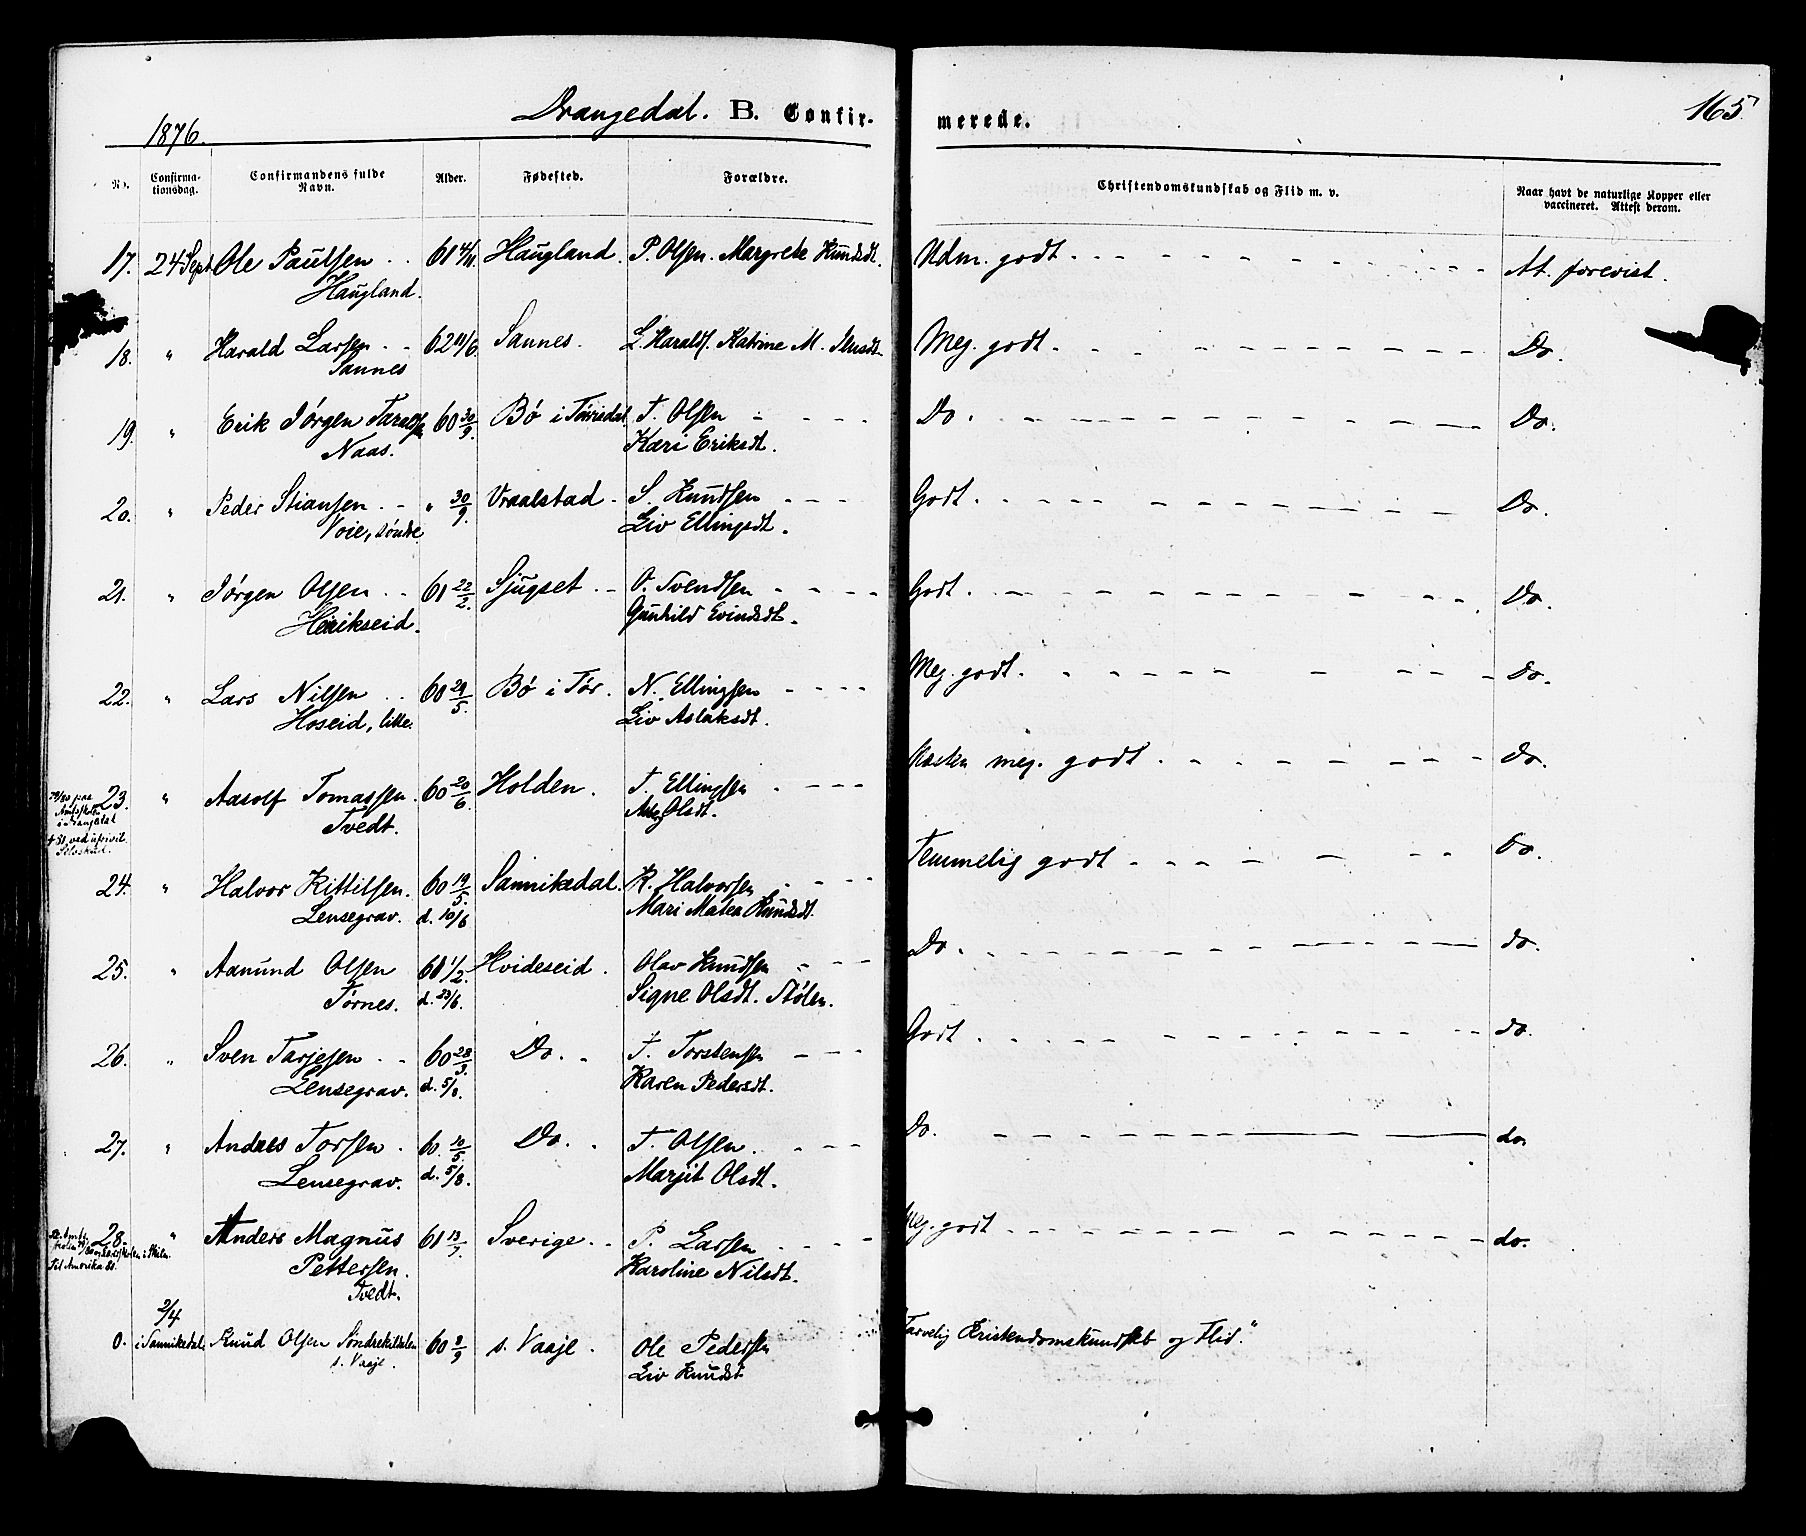 1876.
Drangedal. B. Confir-
merede.
165
No.
Confirma-
tionsdag.
Confirmandens fulde
Navn.
Alder.
Fødested.
Forældre.
Christendomskundskab og Flid m. v.
Naar havt de naturlige Kopper eller
vaccineret. Attest derom.
17. 24 Sept Ole Paulsen 61 4/11 Haugland. P. Olsen. Margrete Knudsdt. Udm. godt. At. forevist.
Haugland.
18. " Harald Larsen 62 Sannes. L. Haralds. Katrine M. Meg. godt. Do.
Sannes
19. " Erik Jørgen Taralds 60 30/9. Bø i Tørrisdal T. Olsen Do. Do.
Naas. Kari Eriksdt.
20. " Peder Stiansen " 30/9. Vraalstad S. Knudsen Godt. Do.
Voie, søndre Liv Ellingsdt.
21. " Jørgen Olsen 61 22/2. Sjugset O. Svendsen Godt. Do.
Henikseid. Gunhild Evindsdt.
22. " Lars Nilsen 60 29/5. Bø i Tør. N. Ellingsen Meg. godt. Do.
Hoseid, litle. Liv Aslaksdt.
23. " Aasolf Tomassen. 60 20/6 Holden. T. Ellingsen Næsten meg. godt. Do.
Tvedt. Olsdt.
24. " Halvor Kittilsen. 60 19/5. Sannikedal. K. Halvorsen Temmelig godt Do.
Lensegrav. d. 10/6 Mari Matea Knudsdt.
25. " Aanund Olsen 60 1/2. Hvideseid. Olav Knudsen Do. do.
Tørnes. d. 23/6. Signe Olsdt. Stølen.
26. " Sven Tarjesen 60 28/3. Do. T. Torstensen Godt do.
Lensegrav. d. 5/8. Karen Pedersdt.
27. " Andres Torsen 60. 10/5. Do. T. Olsen. Do. do.
Lensegrav. d. 5/8. Marjit Olsdt.
28. " Anders Magnus 61 13/7. Sverige. P. Larsen Meg. godt do.
Pettersen. Karoline Nilsdt.
Til Amerika
Tvedt.
2/4
0. i Sannikedal Knud Olsen Søndrekilsdalen 60 8/9 s. Vaaje. Ole Pedersen Tarvelig Kristendomskundskb og Flid."
s. Vaaje. Liv Knudsdt